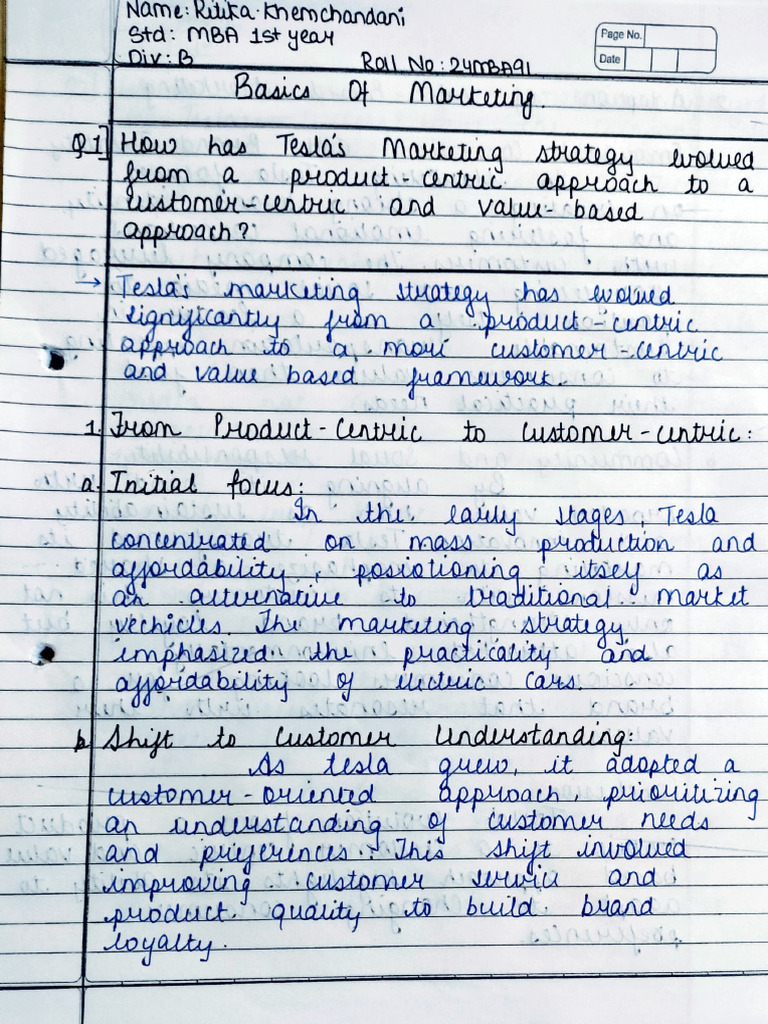 Name: Ritika Khemchandani
Std: MBA 1st year
Div: B Roll No: 24MBA91
Page No.
Date
Basics Of Marketing.
Q.1] How has Tesla's Marketing strategy evolved
from a product-centric approach to a
customer-centric and value-based
approach?
→ Tesla's marketing strategy has evolved
significantly from a product-centric
approach to a more customer-centric
and value based framework.
1. From Product-Centric to Customer-centric:
a. Initial focus:
In the early stages, Tesla
concentrated on mass production and
affordability, posiotioning itself as
an alternative to traditional market
vechicles. The marketing strategy
emphasized the practicality and
affordability of electric cars.
b. Shift to Customer Understanding:
As tesla grew, it adopted a
customer-oriented approach, prioritizing
an understanding of customer needs
and preferences. This shift involved
improving customer service and
product quality to build brand
loyalty.